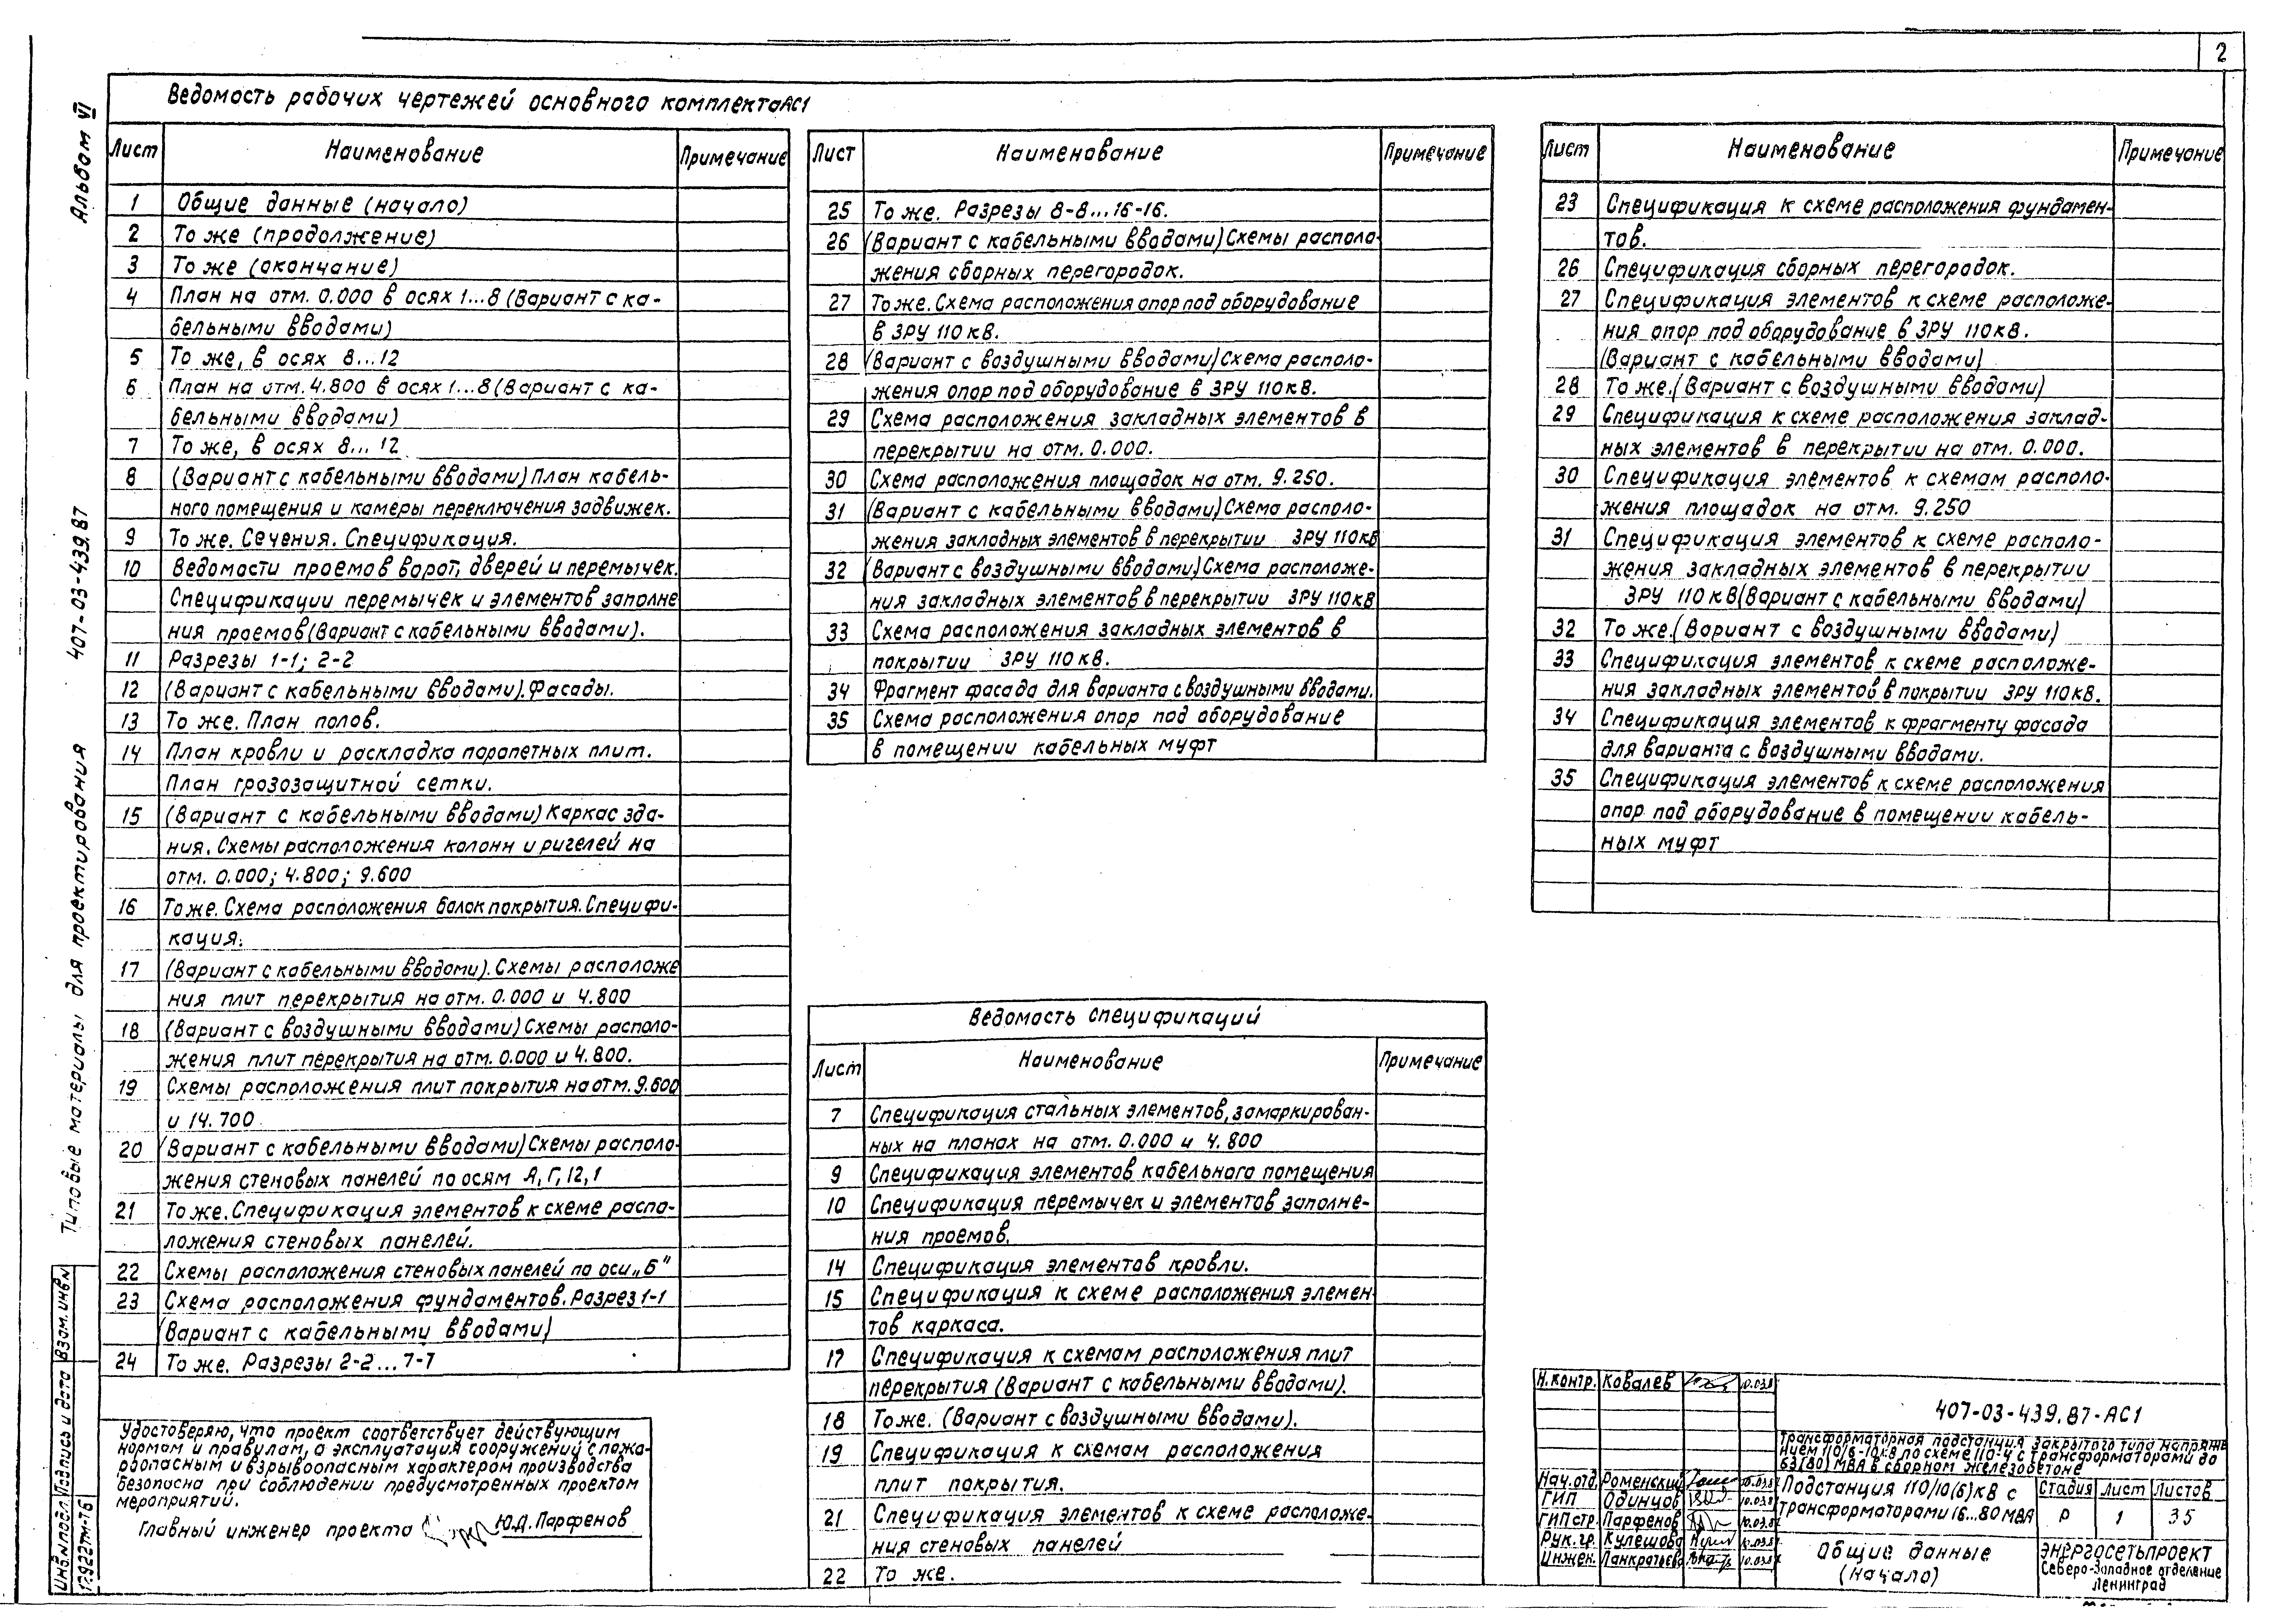 2
Альбом VI
407-03-439.87
Типовые материалы для проектирования
Взам. инв.№
Подпись и дата
Инв.№подл.
12922тм-т6
Ведомость рабочих чертежей основного комплекта АС1
Лист Наименование Примечание
1 Общие данные (начало)
2 То же (продолжение)
3 То же (окончание)
4 План на отм. 0.000 в осях 1...8 (Вариант с ка-
бельными вводами)
5 То же, в осях 8...12
6 План на отм. 4.800 в осях 1...8 (Вариант с ка-
бельными вводами)
7 То же, в осях 8...12
8 (Вариант с кабельными вводами) План кабель-
ного помещения и камеры переключения задвижек.
9 То же. Сечения. Спецификация.
10 Ведомости проемов ворот, дверей и перемычек.
Спецификации перемычек и элементов заполне
ния проемов (Вариант с кабельными вводами).
11 Разрезы 1-1; 2-2
12 (Вариант с кабельными вводами). Фасады.
13 То же. План полов.
14 План кровли и раскладка парапетных плит.
План грозозащитной сетки.
15 (Вариант с кабельными вводами) Каркас зда-
ния. Схемы расположения колонн и ригелей на
отм. 0.000; 4.800; 9.600
16 То же. Схема расположения балок покрытия. Специфи-
кация.
17 (Вариант с кабельными вводами). Схемы расположе
ния плит перекрытия на отм. 0.000 и 4.800
18 (Вариант с воздушными вводами) Схемы располо-
жения плит перекрытия на отм. 0.000 и 4.800.
19 Схемы расположения плит покрытия на отм. 9.600
и 14.700
20 (Вариант с кабельными вводами) Схемы располо-
жения стеновых панелей по осям А, Г, 12, 1
21 То же. Спецификация элементов к схеме распо-
ложения стеновых панелей.
22 Схемы расположения стеновых панелей по оси „Б"
23 Схема расположения фундаментов. Разрез 1-1
(Вариант с кабельными вводами)
24 То же. Разрезы 2-2...7-7
Удостоверяю, что проект соответствует действующим
нормам и правилам, а эксплуатация сооружений с пожа-
роопасным и взрывоопасным характером производства
безопасна при соблюдении предусмотренных проектом
мероприятий.
Главный инженер проекта Ю.Д. Парфенов
Лист Наименование Примечание
25 То же. Разрезы 8-8...16-16.
26 (Вариант с кабельными вводами) Схемы располо-
жения сборных перегородок.
27 То же. Схема расположения опор под оборудование
в ЗРУ 110 кВ.
28 (Вариант с воздушными вводами) Схема располо-
жения опор под оборудование в ЗРУ 110 кВ.
29 Схема расположения закладных элементов в
перекрытии на отм. 0.000.
30 Схема расположения площадок на отм. 9.250.
31 (Вариант с кабельными вводами) Схема располо-
жения закладных элементов в перекрытии ЗРУ 110 кВ
32 (Вариант с воздушными вводами) Схема расположе-
ния закладных элементов в перекрытии ЗРУ 110 кВ
33 Схема расположения закладных элементов в
покрытии ЗРУ 110 кВ.
34 Фрагмент фасада для варианта с воздушными вводами.
35 Схема расположения опор под оборудование
в помещении кабельных муфт
Ведомость спецификаций
Лист Наименование Примечание
7 Спецификация стальных элементов, замаркирован-
ных на планах на отм. 0.000 и 4.800
9 Спецификация элементов кабельного помещения
10 Спецификация перемычек и элементов заполне-
ния проемов.
14 Спецификация элементов кровли.
15 Спецификация к схеме расположения элемен
тов каркаса.
17 Спецификация к схемам расположения плит
перекрытия (Вариант с кабельными вводами).
18 То же. (Вариант с воздушными вводами).
19 Спецификация к схемам расположения
плит покрытия.
21 Спецификация элементов к схеме расположе-
ния стеновых панелей
22 То же.
Лист Наименование Примечание
23 Спецификация к схеме расположения фундамен-
тов.
26 Спецификация сборных перегородок.
27 Спецификация элементов к схеме расположе-
ния опор под оборудование в ЗРУ 110 кВ.
(Вариант с кабельными вводами)
28 То же. (Вариант с воздушными вводами)
29 Спецификация к схеме расположения заклад-
ных элементов в перекрытии на отм. 0.000.
30 Спецификация элементов к схемам располо-
жения площадок на отм. 9.250
31 Спецификация элементов к схеме располо-
жения закладных элементов в перекрытии
ЗРУ 110 кВ (Вариант с кабельными вводами)
32 То же. (Вариант с воздушными вводами)
33 Спецификация элементов к схеме расположе-
ния закладных элементов в покрытии ЗРУ 110 кВ.
34 Спецификация элементов к фрагменту фасада
для варианта с воздушными вводами.
35 Спецификация элементов к схеме расположения
опор под оборудование в помещении кабель-
ных муфт
Н. контр. Ковалев 10.03.8
407-03-439.87-АС1
Трансформаторная подстанция закрытого типа напряже
нием 110/6-10 кВ по схеме 110-4 с трансформаторами до
63(80) МВА в сборном железобетоне
Нач. отд. Роменский 10.03.87
ГИП Одинцов 10.03.87
ГИП стр. Парфенов 10.03.87
Рук. гр. Кулешова 10.03.87
Инжен. Панкратьева 10.03.87
Подстанция 110/10(6) кВ с
трансформаторами 16...80 МВА
Стадия Лист Листов
Р 1 35
Общие данные
(начало)
Энергосетьпроект
Северо-Западное отделение
Ленинград